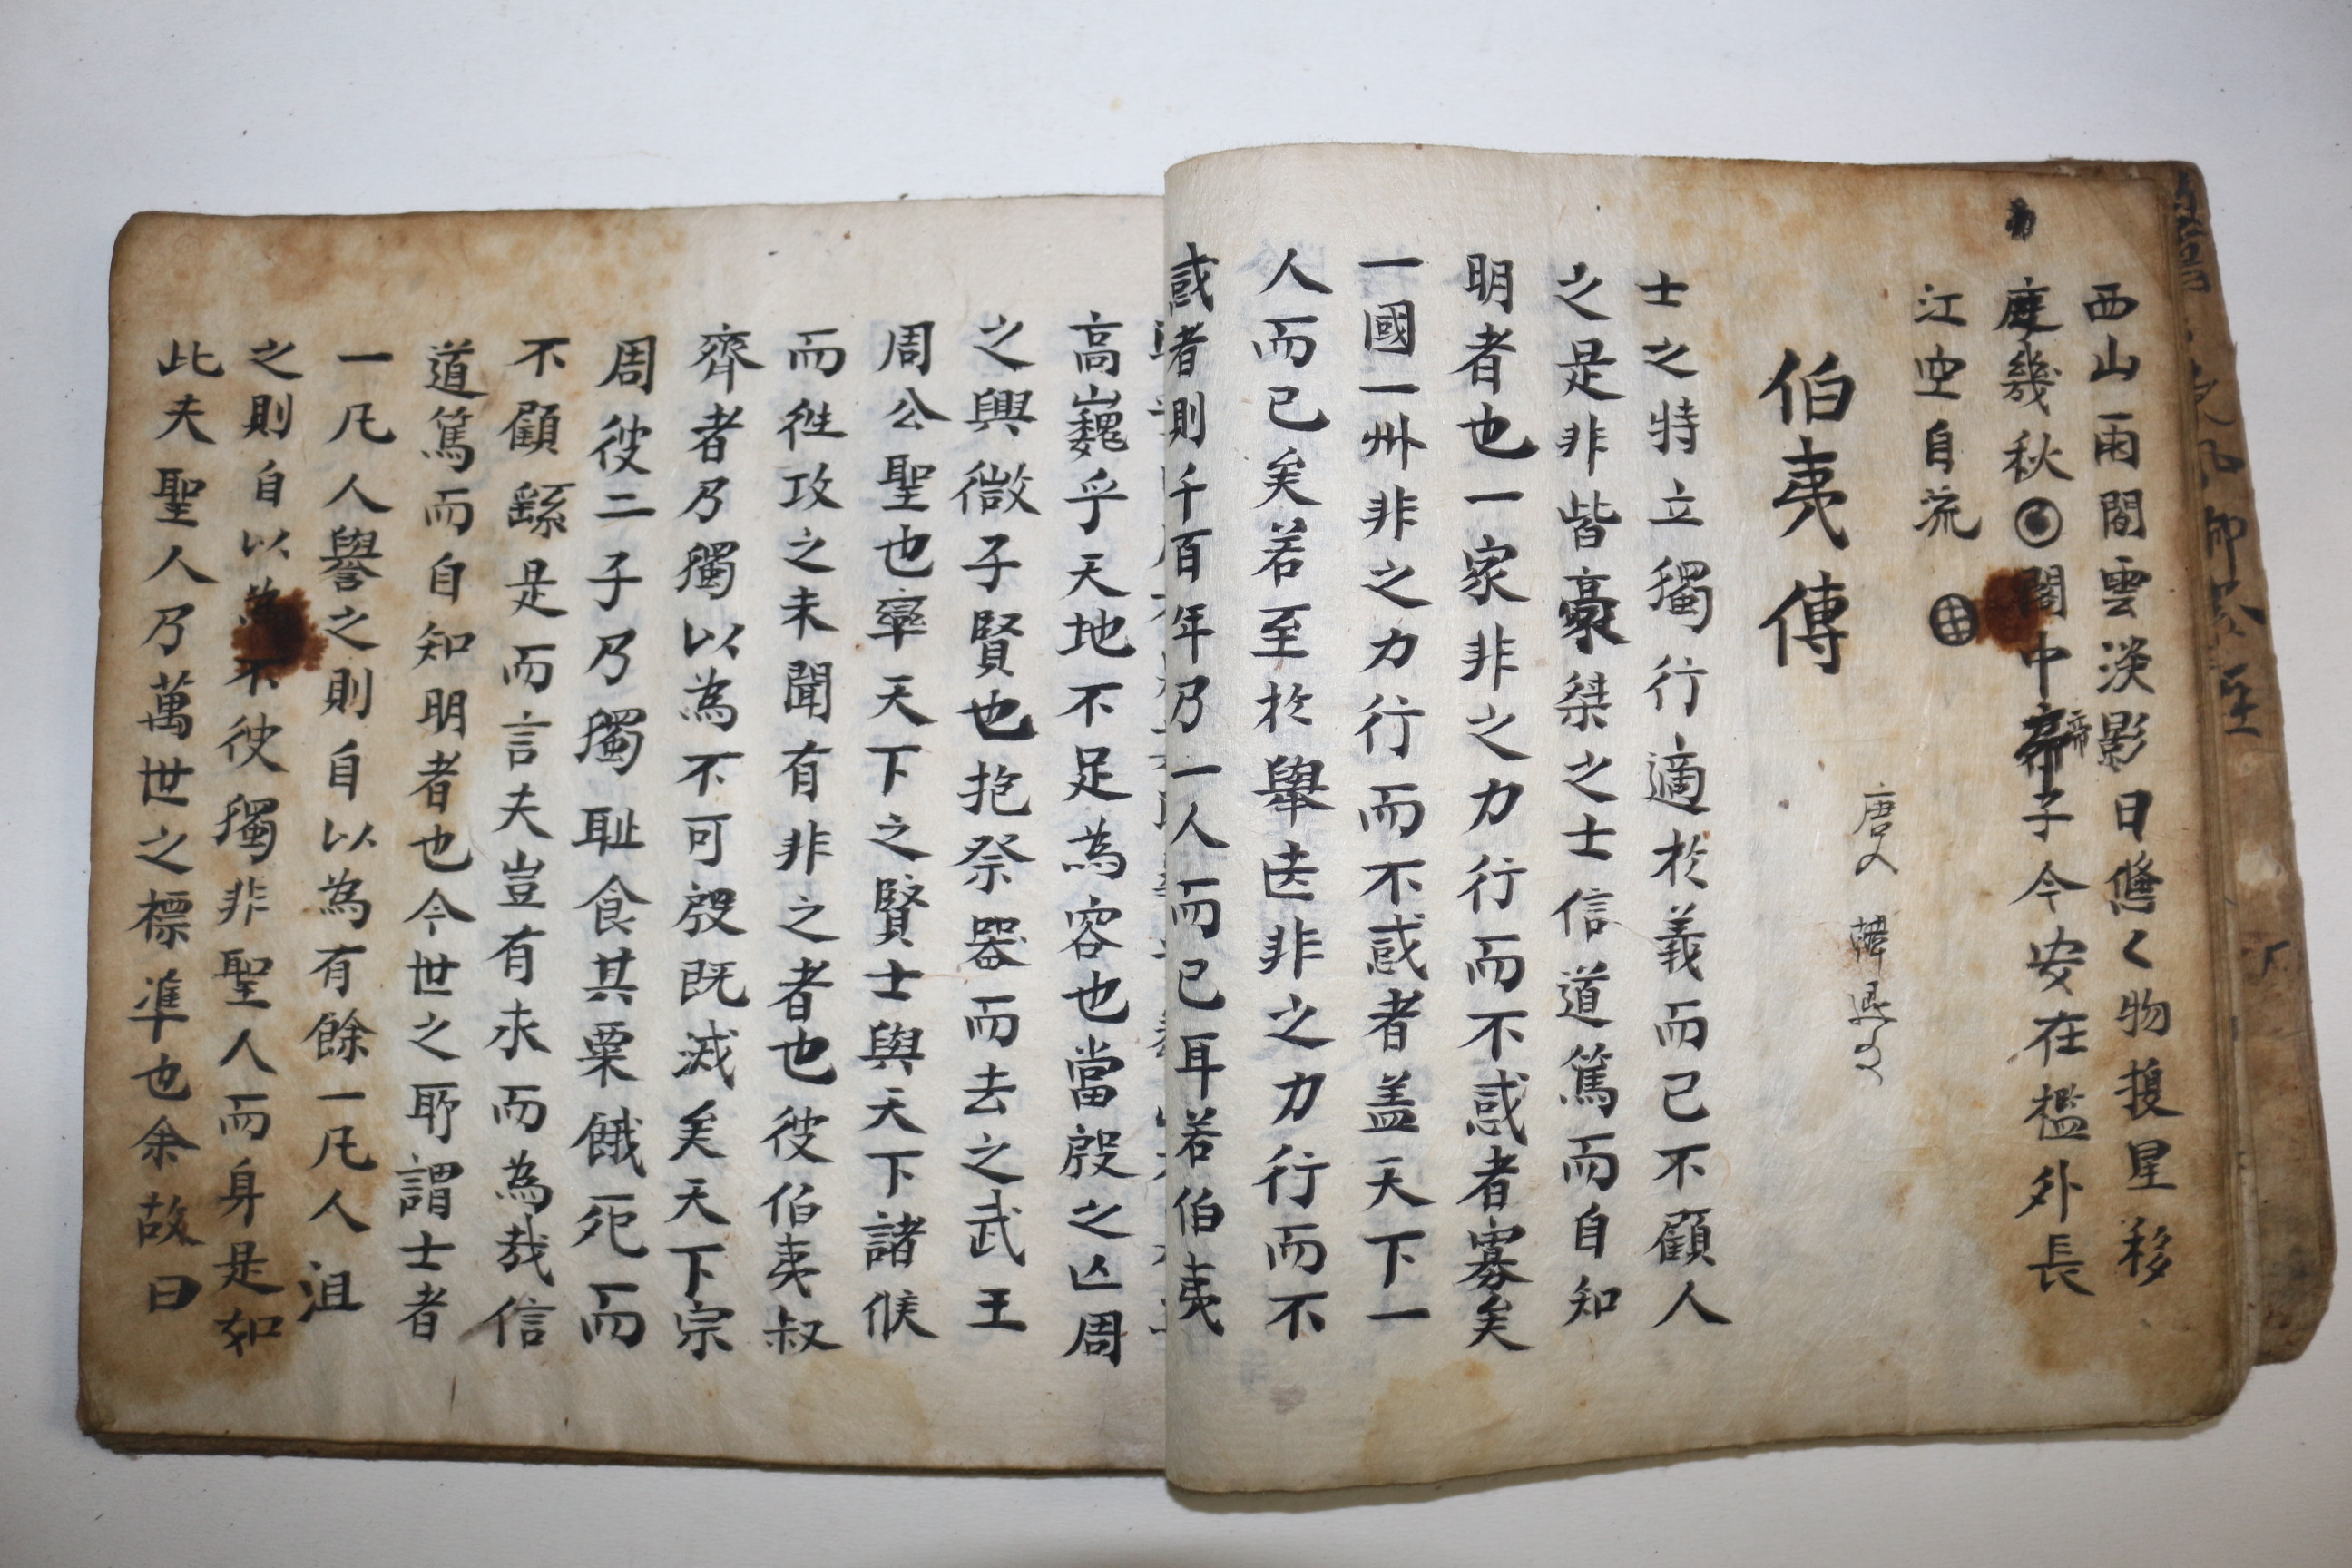 西山雨閻雲淡影日悠く物換星移
度幾秋 閣中帝子今安在檻外長
江空自流
伯夷傳
唐文 韓退之
士之特立獨行適於義而已不顧人
之是非皆豪桀之士信道篤而自知
明者也一家非之力行而不惑者寡矣
一國一州非之力行而不惑者盖天下一
人而已矣若至於舉世非之力行而不
惑者則千百年乃一人而已耳若伯夷
高巍乎天地不足為容也當殷之亾周
之興微子賢也抱祭器而去之武王
周公聖也率天下之賢士與天下諸候
而徃攻之未聞有非之者也彼伯夷叔
齊者乃獨以為不可殷既滅矣天下宗
周彼二子乃獨耻食其粟餓死而
不顧繇是而言夫豈有求而為哉信
道篤而自知明者也今世之所謂士者
一凡人譽之則自以為有餘一凡人沮
之則自以為不彼獨非聖人而身是如
此夫聖人乃萬世之標準也余故曰